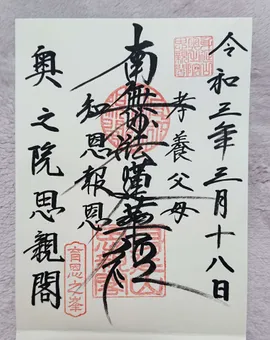 令和三年三月十八日
孝養父母
南無妙法蓮華経
知恩報恩
育恩之峯
奥之院思親閣